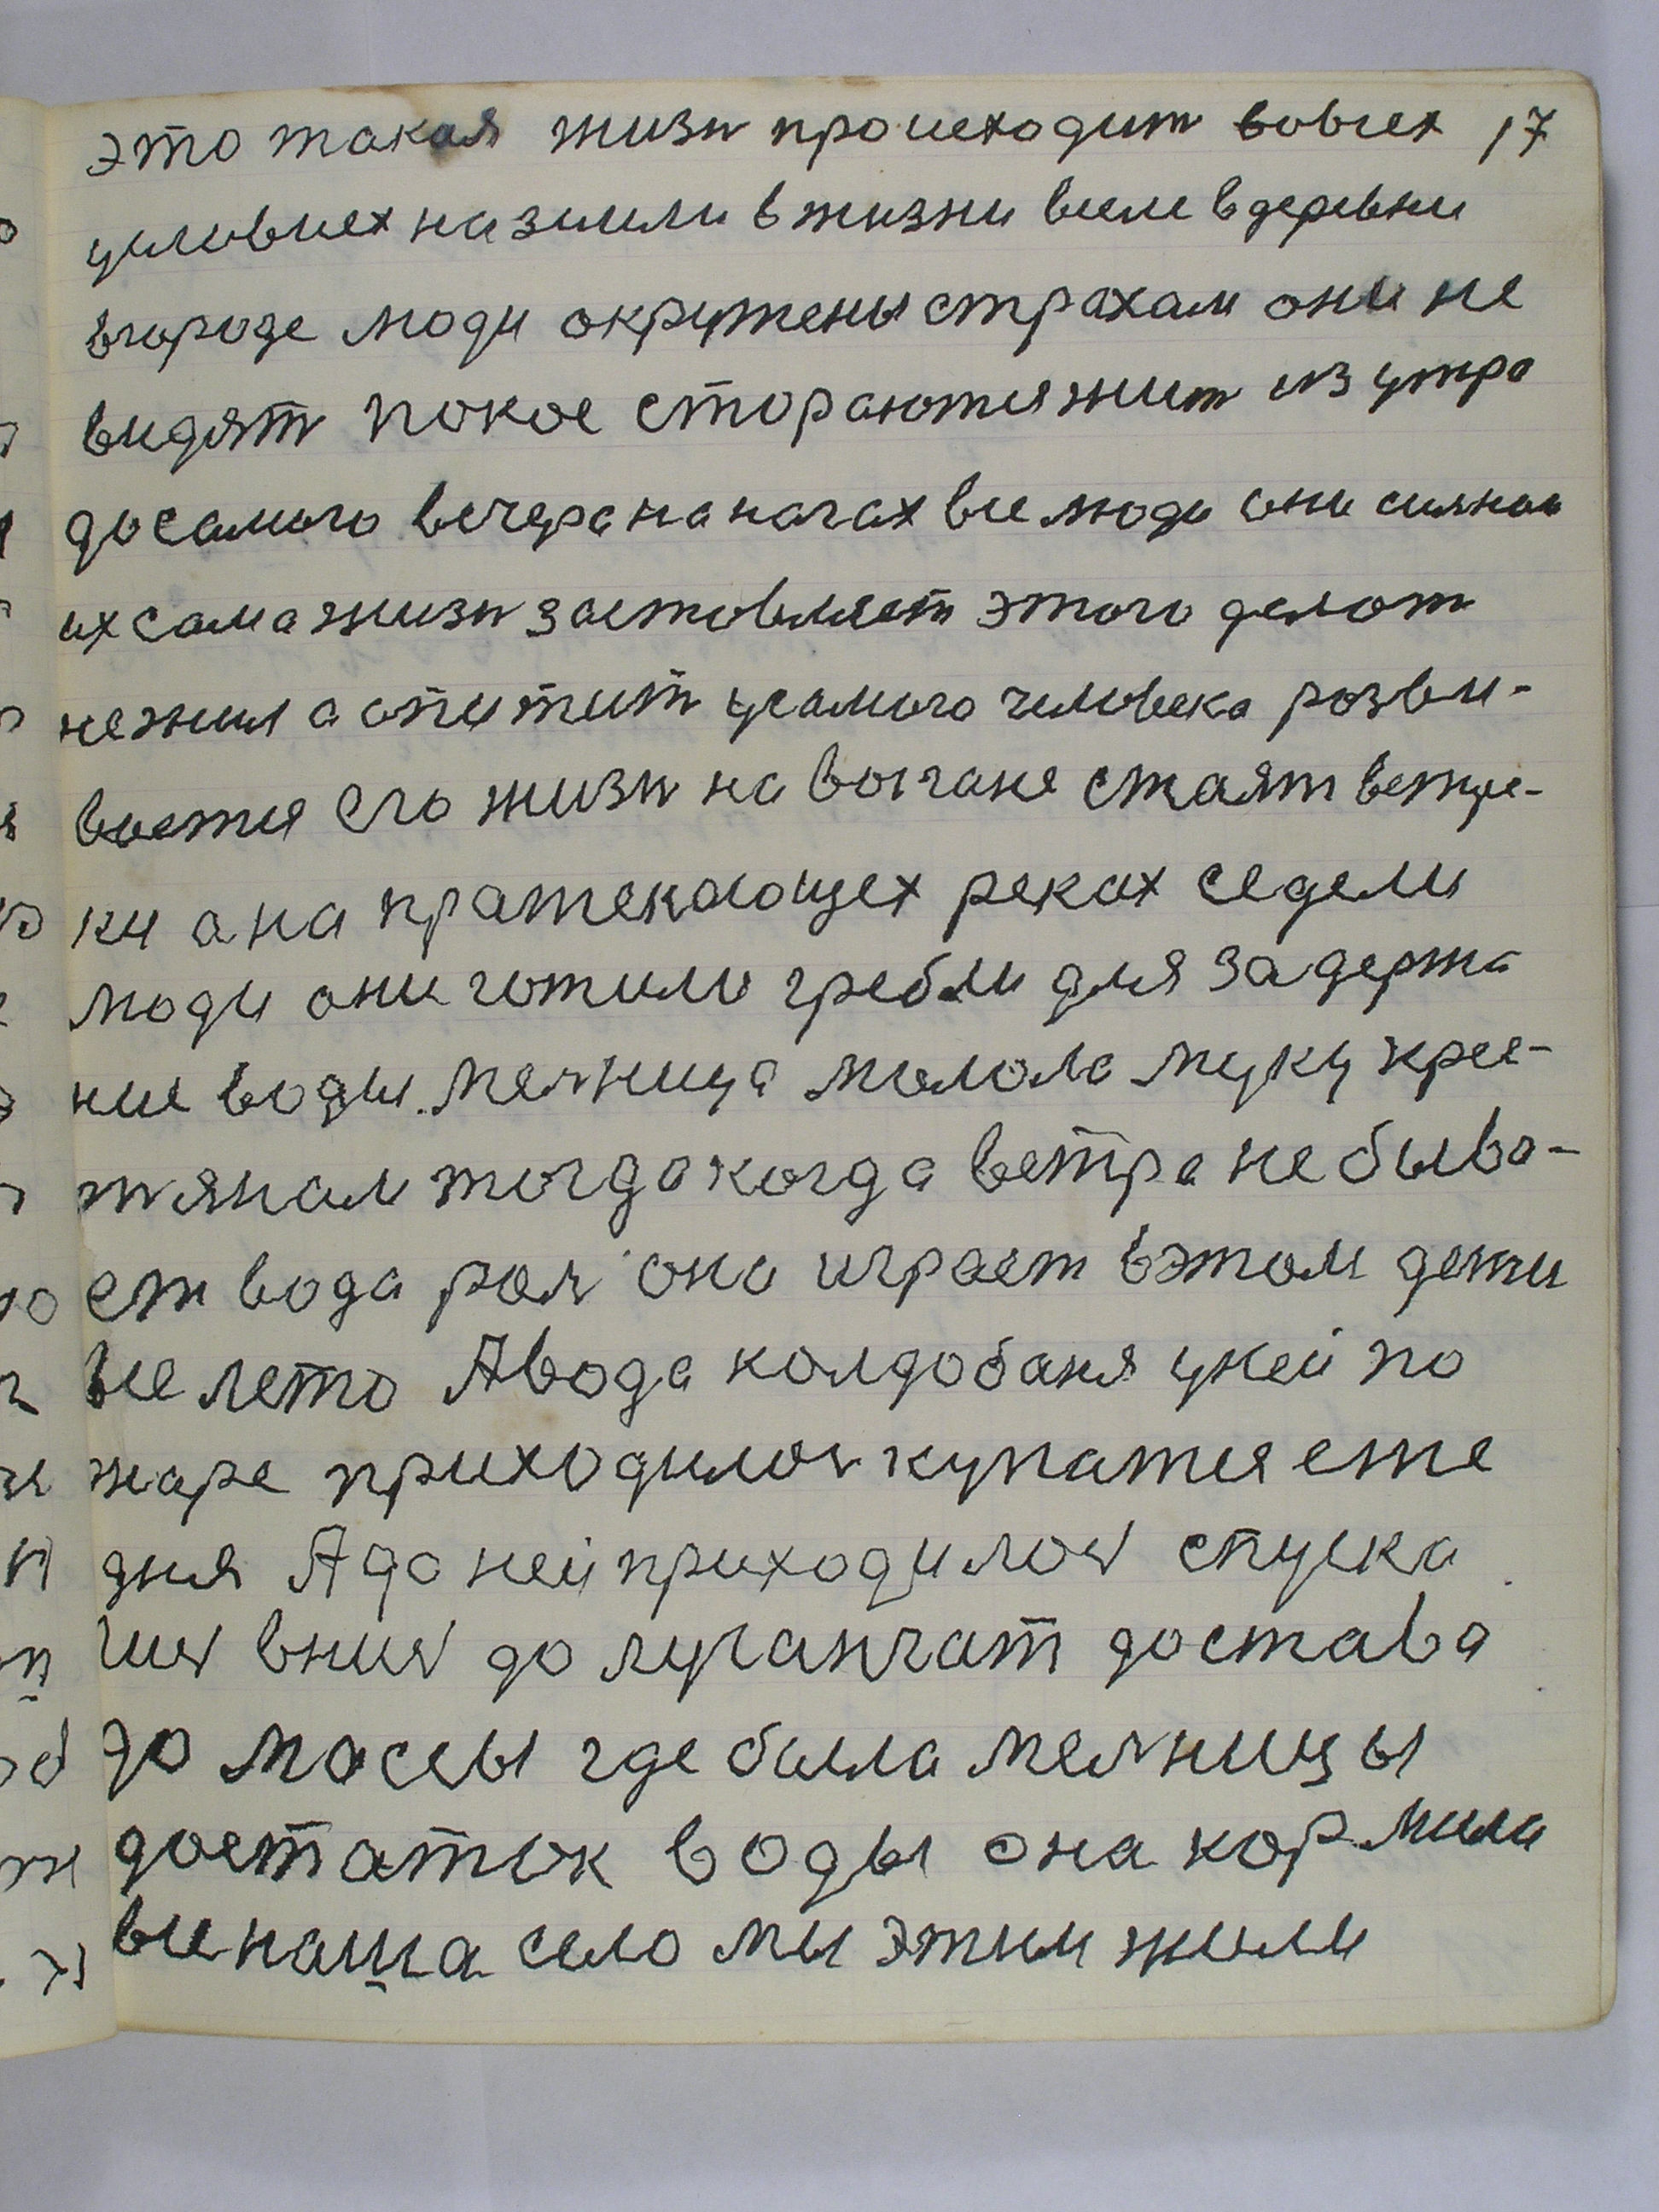 это такая жизн происходит вовсех 17
условиех на земли в жизнивселе вдеревни
вгороде люди окружены страхам они не
видят покое стораютсяжит из утра
досамого вечера на ногах все люди они
ихсама жизн застовляет этого делот
нежил а опитит усамого человека розви-
вается его жизн на выгане стаят ветре-
ки а на пратекающех реках седели
люди они готили гребли для задержа
ние воды. Мелница молола муку крес-
тянам тогдакогда ветра не быва-
ет вода рол она играет вэтом дети
все лето Авода колдобаня укей по
жаре приходилос купатся сте
дня Адо ней приходилос спуска
тся вниз до луга достава
до масы где была мелницы
достаток воды она кормила
все наша село мы этим жили